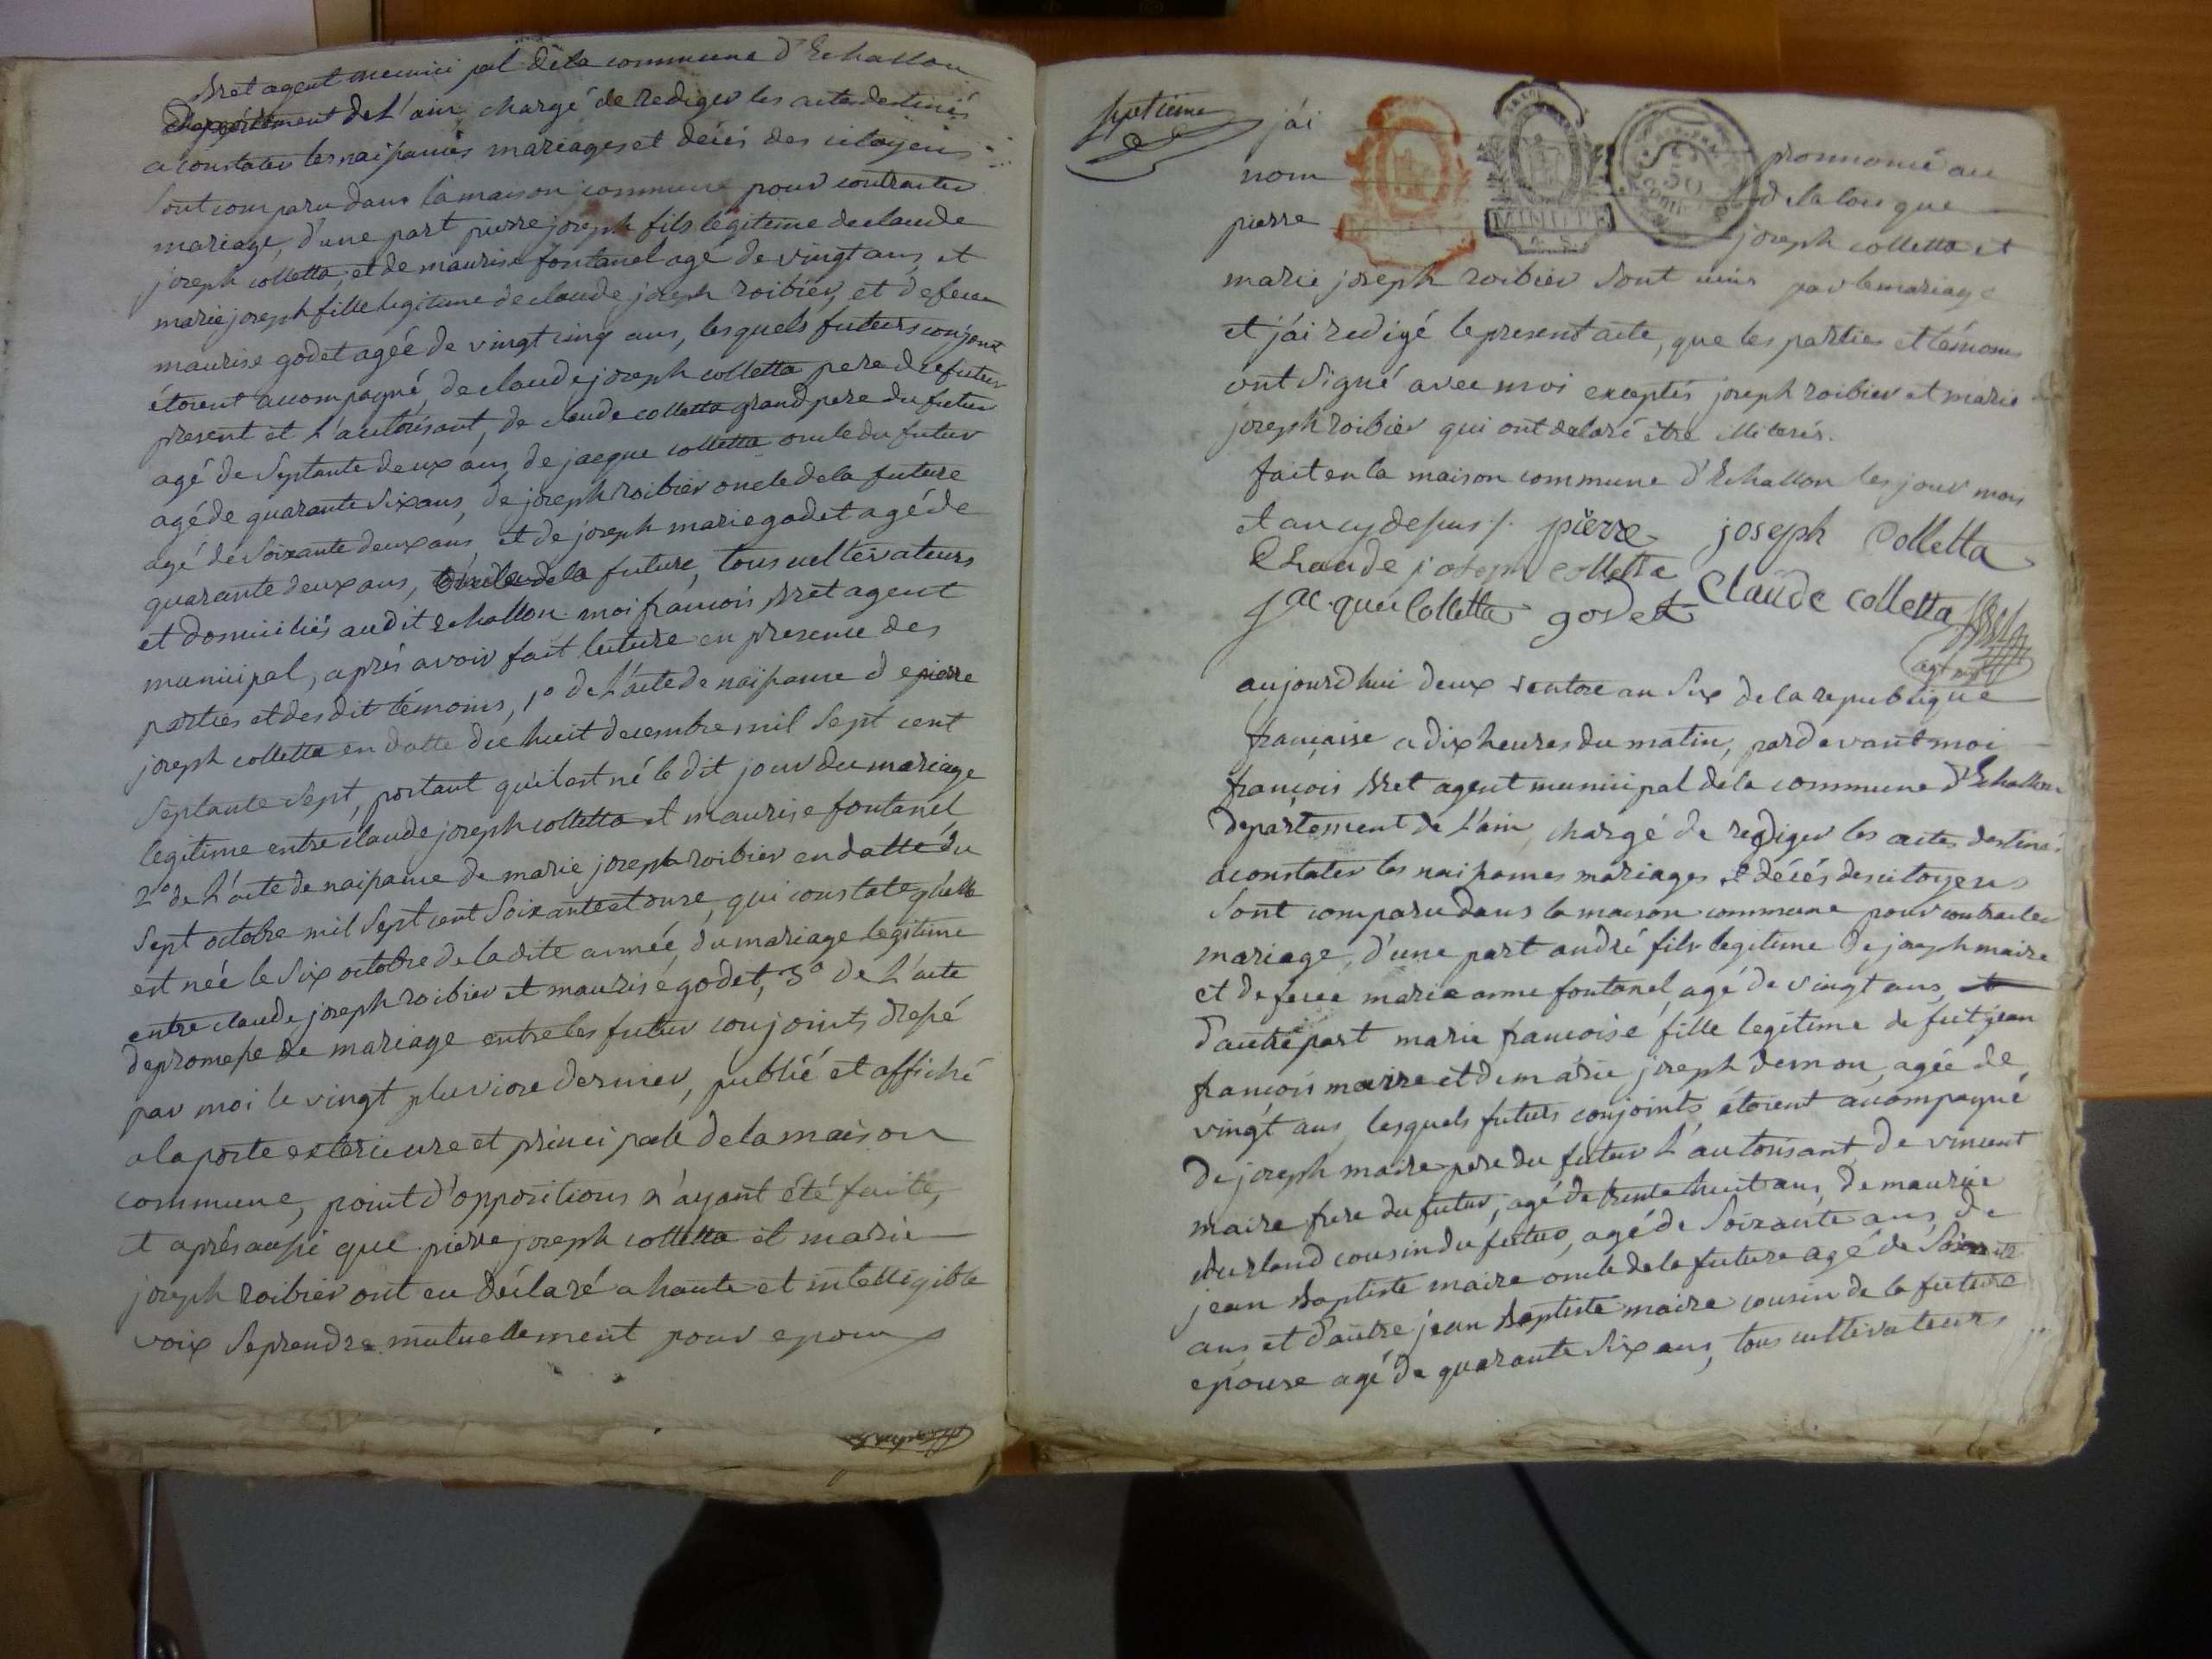 Bret agent municipal dela commune d'Echallon
département de L'ain chargé de rediger les actes destinés
a constater les naissances mariages et décés des citoyens
sont comparu dans la maison commune pour contracter
mariage, d'une part pierre joseph fils légitime declaude
joseph colletta, et de maurise fontanel agé de vingt ans, et
marie joseph fille legitime de claude joseph roibier, et defeue
maurise godet ageé de vingt cinq ans, lesquels futurs conjoint
étoient accompagné, de claude joseph colletta pere du futur
present et L'autorisant, de claude colletta grand pere du futur
agé de septante deux ans, de jacque colletta oncle du futur
agé de quarante six ans, de joseph roibier oncle de la future
agé de soixante deux ans, et de joseph marie godet agé de
quarante deux ans, oncle dela future, tous cultivateurs
et domiciliés audit echallon. moi françois Bret agent
municipal, aprés avoir fait lecture en presence des
parties et des dit témoins, 1º de L'acte de naissance de pierre
joseph colletta en datte die huit decembre mil sept cent
septante sept, portant qu'il est né le dit jour du mariage
legitime entre claude joseph colletta et maurise fontanel
2º de L'acte de naissance de marie joseph roibier en datte du
sept octobre mil sept cent soixante et onze, qui constate qu'elle
est née le six octobre de la dite année, du mariage legitime
entre claude joseph roibier et maurise godet, 3º de L'acte
de promesse de mariage entre les futur conjoints dressé
par moi le vingt pluviose dernier, publié et affiché
a la porte exterieure et principale dela maison
commune, point d'oppositions n'ayant été faite,
et aprés aussi que pierre joseph colletta et marie
joseph roibier ont eu déclaré a haute et intelligible
voix se prendre mutuellement pour epoux
septieme
j'ai prononcé au
nom dela loi que
pierre joseph colletta et
MINUTE
50
marie joseph roibier sont unis par le mariage
et j'ai redigé le present acte, que les parties et témoins
ont signé avec moi exceptés joseph roibier et marie
joseph roibier qui ont declaré être illiterés.
fait en la maison commune d'Echallon les jour mois
et an cy dessus ./. pierre joseph Colletta
Chaude joseph colletta Claude Colletta
Jacque Colletta godet Bret
agt mpl
aujourd'hui deux ventose an six de la republique
française a dix heures du matin, pardevant moi
françois Bret agent municipal dela commune d'Echallon
departement de L'ain, chargé de rediger les actes destinés
a constater les naissances mariages et décés des citoyens
sont comparu dans la maison commune pour contracter
mariage, d'une part andré fils legitime de joseph maire
et defeue marie anne fontanel, agé de vingt ans,
d'autre part marie francoise fille legitime de feu jean
françois maire et de marie joseph demon, ageé de
vingt ans, lesquels futurs conjoints étoient accompagné
de joseph maire pere du futur L'autorisant, de vincent
maire frere du futur, agé de trente huit ans, de maurice
Burland cousin du futur, agé de soixante ans, de
jean Baptiste maire oncle de la future agé de soixante
ans et d'autre jean Baptiste maire cousin de la future
epouse agé de quarante six ans, tous cultivateurs